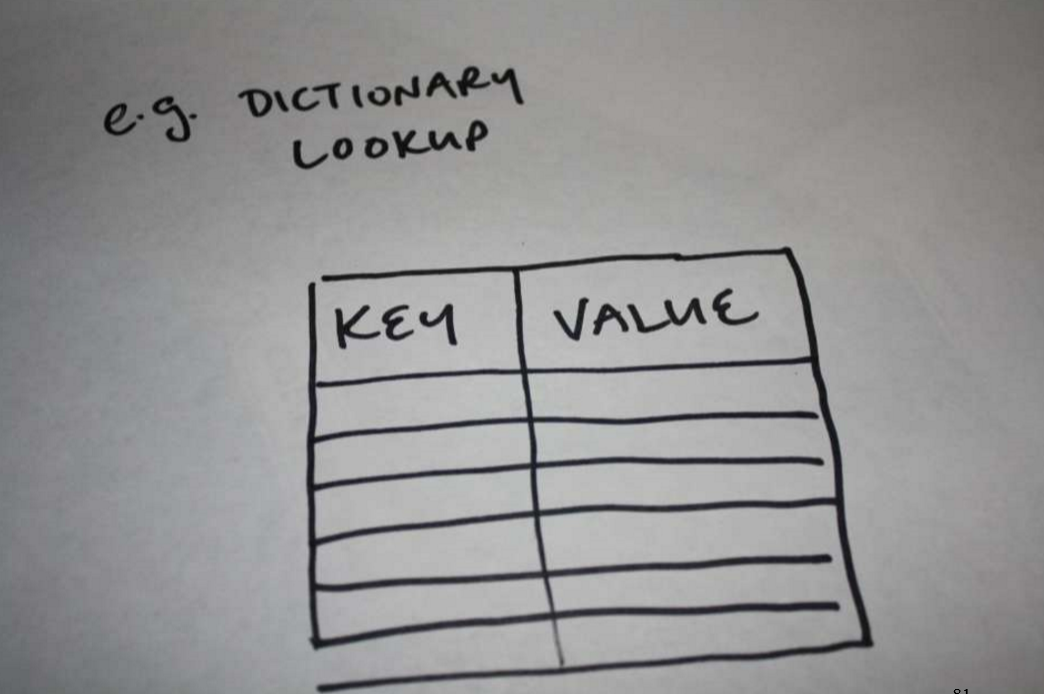 e.g. DICTIONARY
LOOKUP
KEY VALUE
81